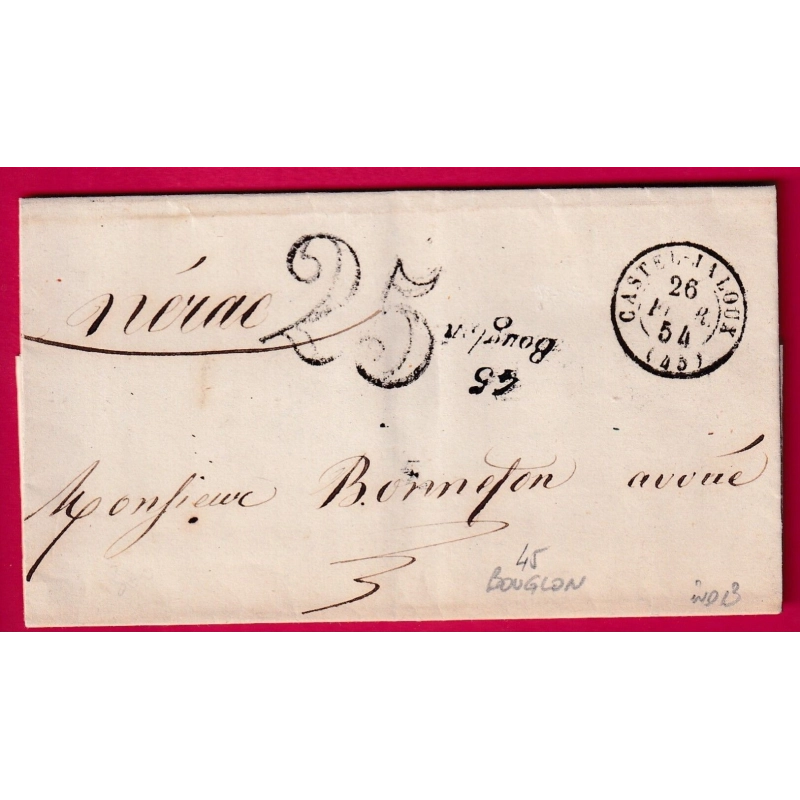 Nérac
25
45
Bouglon
CASTEL-JALOUX
26
FEVR.
54
(45)
Monsieur Bonnefon avoué
45
BOUGLON
IND 13